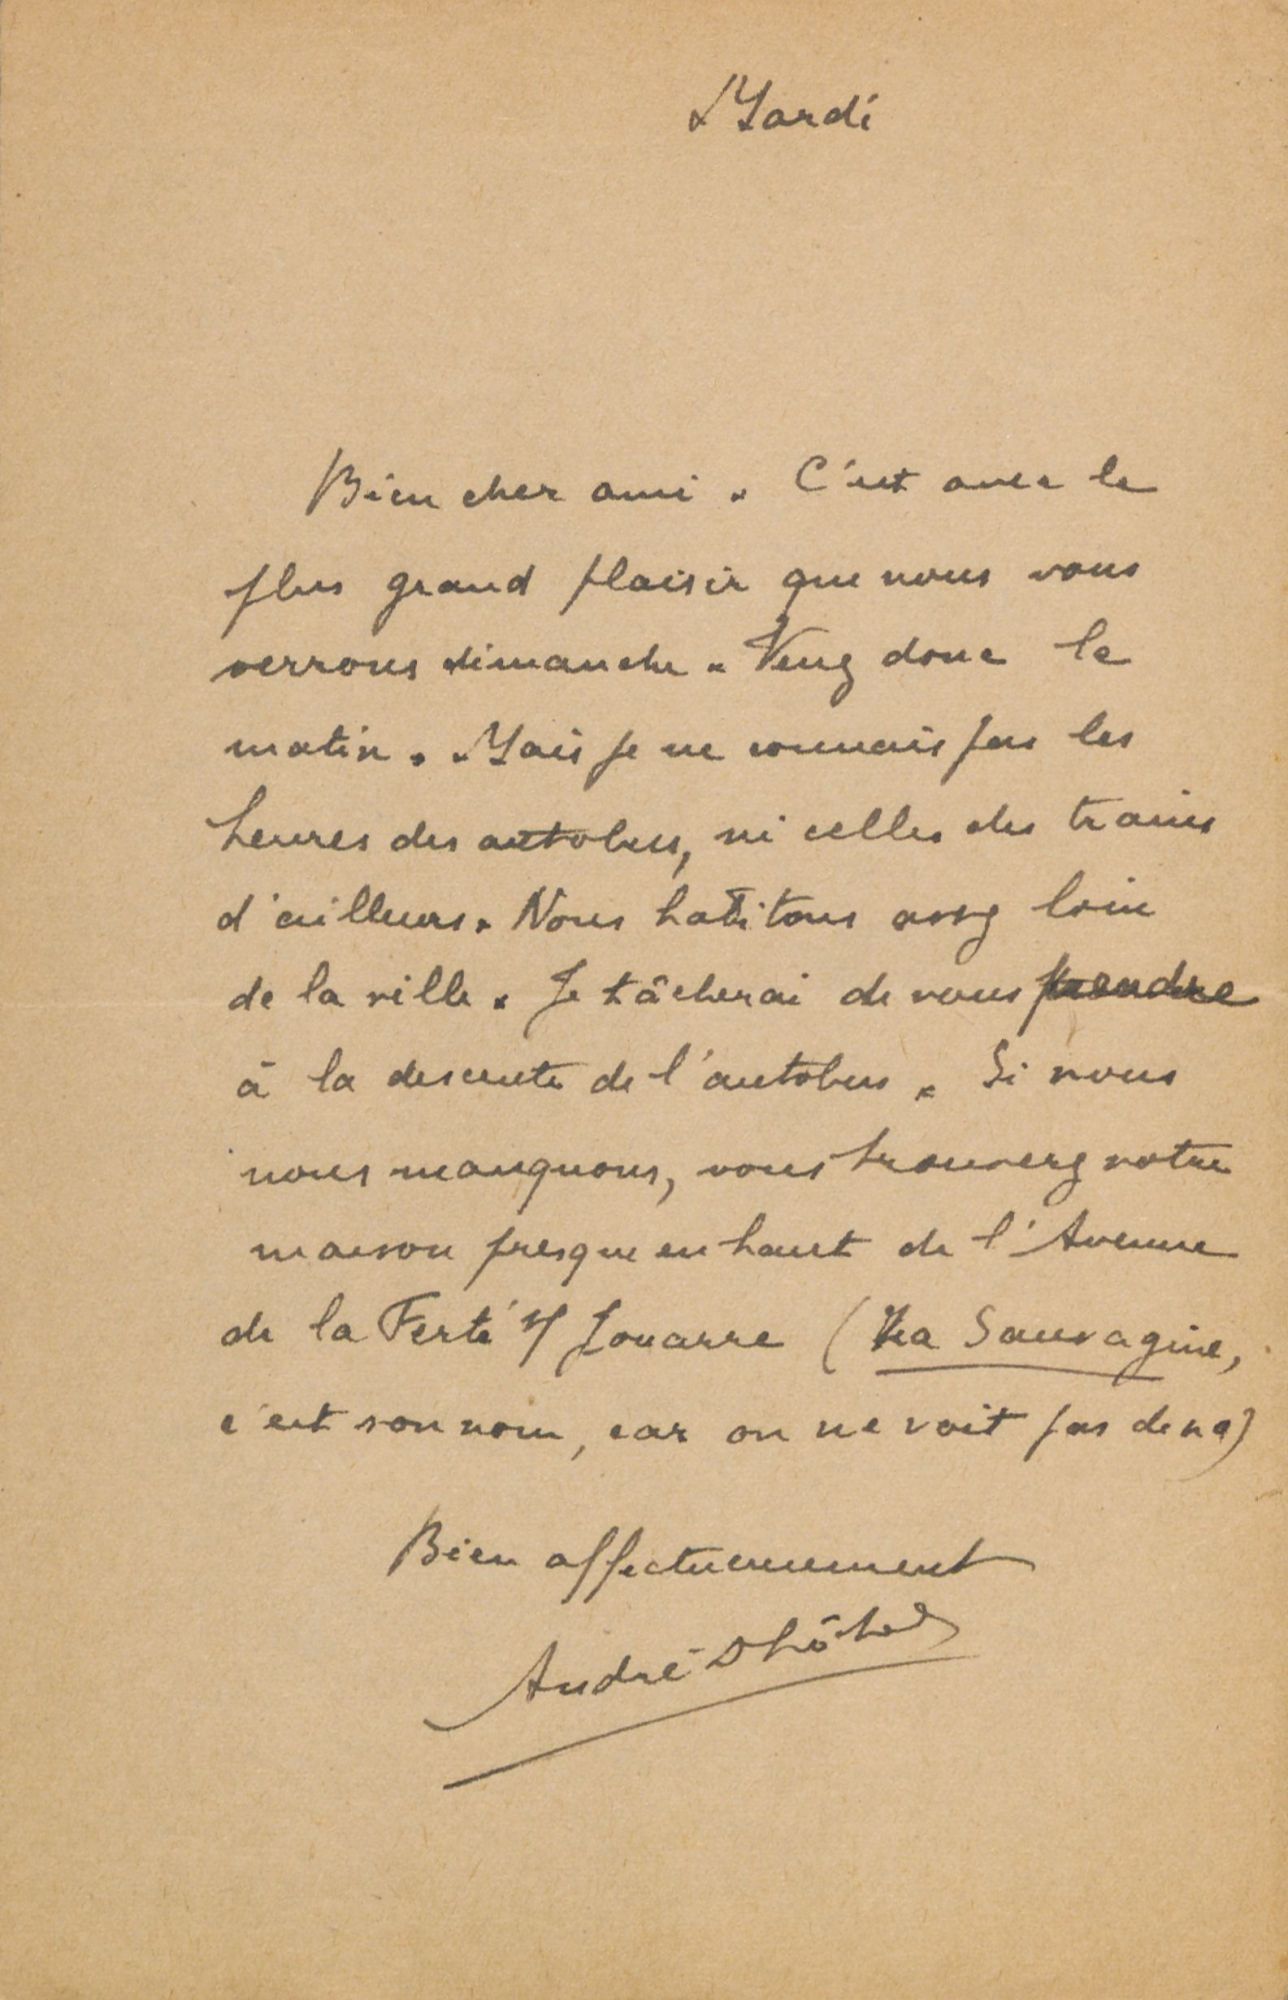 Mardi
Bien cher ami. C'est avec le
plus grand plaisir que nous vous
verrons dimanche. Venez donc le
matin. Mais je ne connais pas les
heures des autobus, ni celles des trains
d'ailleurs. Nous habitons assez loin
de la ville. Je tâcherai de vous prendre
à la descente de l'autobus. Si nous
nous manquons, vous trouverez notre
maison presque en haut de l'Avenue
de la Ferté s/ Jouarre (La Sauvagine,
c'est son nom, car on ne voit pas de no)
Bien affectueusement
André Dhôtel